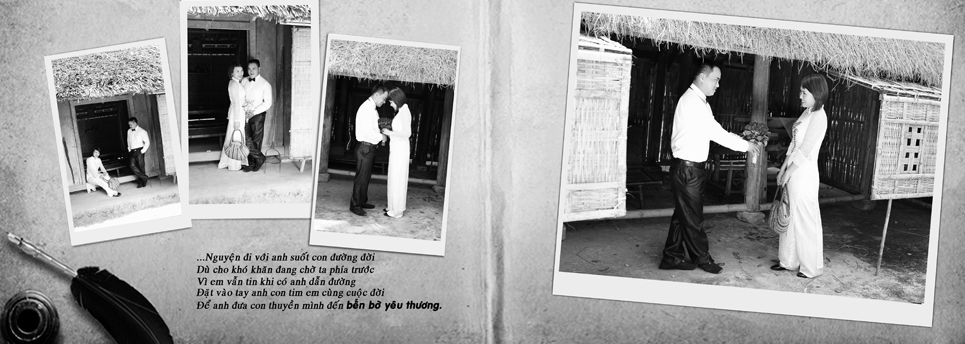 ...Nguyện đi với anh suốt con đường đời
Dù cho khó khăn đang chờ ta phía trước
Vì em vẫn tin khi có anh dẫn đường
Đặt vào tay anh con tim em cùng cuộc đời
Để anh đưa con thuyền mình đến bến bờ yêu thương.